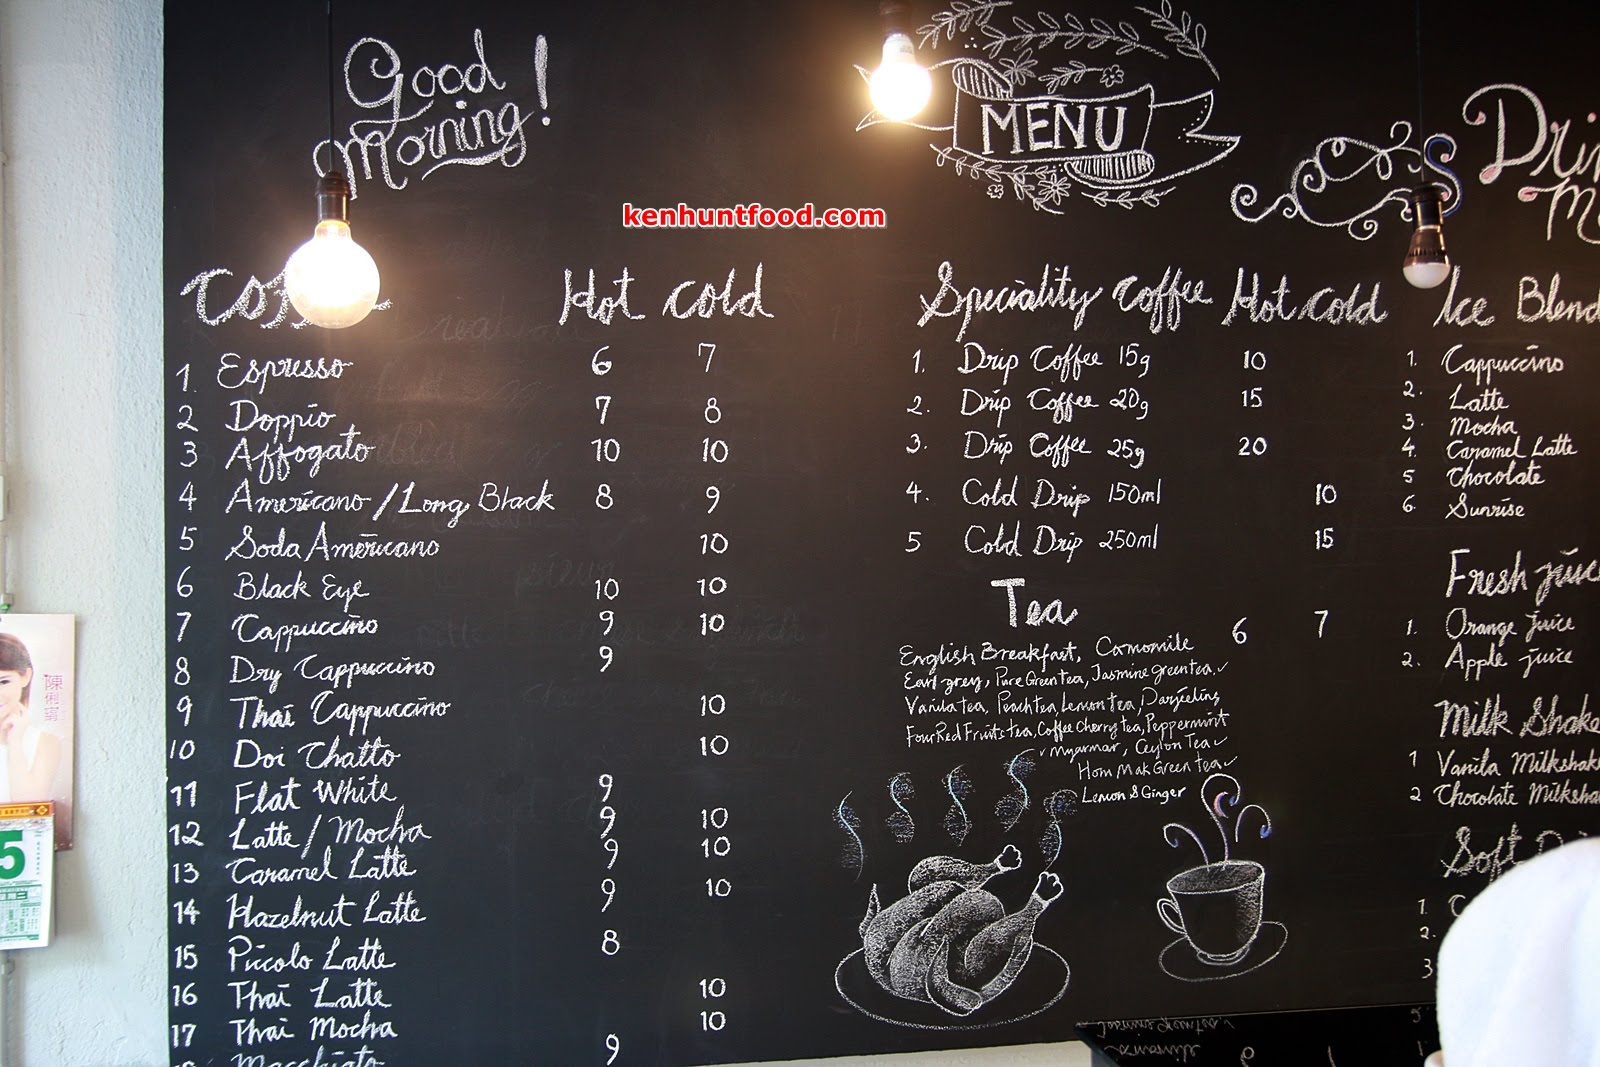 Good
Morning!
MENU
kenhuntfood.com
Hot Cold
1. Espresso 6 7
2 Doppio 7 8
3 Affogato 10 10
4 Americano / Long Black 8 9
5 Soda Americano 10
6 Black Eye 10 10
7 Cappuccino 9 10
8 Dry Cappuccino 9
9 Thai Cappuccino 10
10 Doi Chatto 10
11 Flat White 9
12 Latte / Mocha 9 10
13 Caramel Latte 9 10
14 Hazelnut Latte 9 10
15 Piccolo Latte 8
16 Thai Latte 10
17 Thai Mocha 10
Macchiato 9
Speciality Coffee Hot Cold
1. Drip Coffee 15g 10
2. Drip Coffee 20g 15
3. Drip Coffee 25g 20
4. Cold Drip 150ml 10
5 Cold Drip 250ml 15
Tea 6 7
English Breakfast, Camomile
Earl grey, Pure Green tea, Jasmine green tea.
Vanila tea, Peach tea, Lemon tea, Darjeeling
Four Red Fruits tea, Coffee Cherry tea, Peppermint
Myanmar, Ceylon Tea
Hom Mak Green tea
Lemon & Ginger
Ice Blend
1. Cappuccino
2. Latte
3. Mocha
4. Caramel Latte
5 Chocolate
6. Sunrise
Fresh
1. Orange juice
2. Apple juice
Milk Shake
1 Vanila Milkshake
2 Chocolate Milksha
Soft
1.
2.
3
陳
俐
5